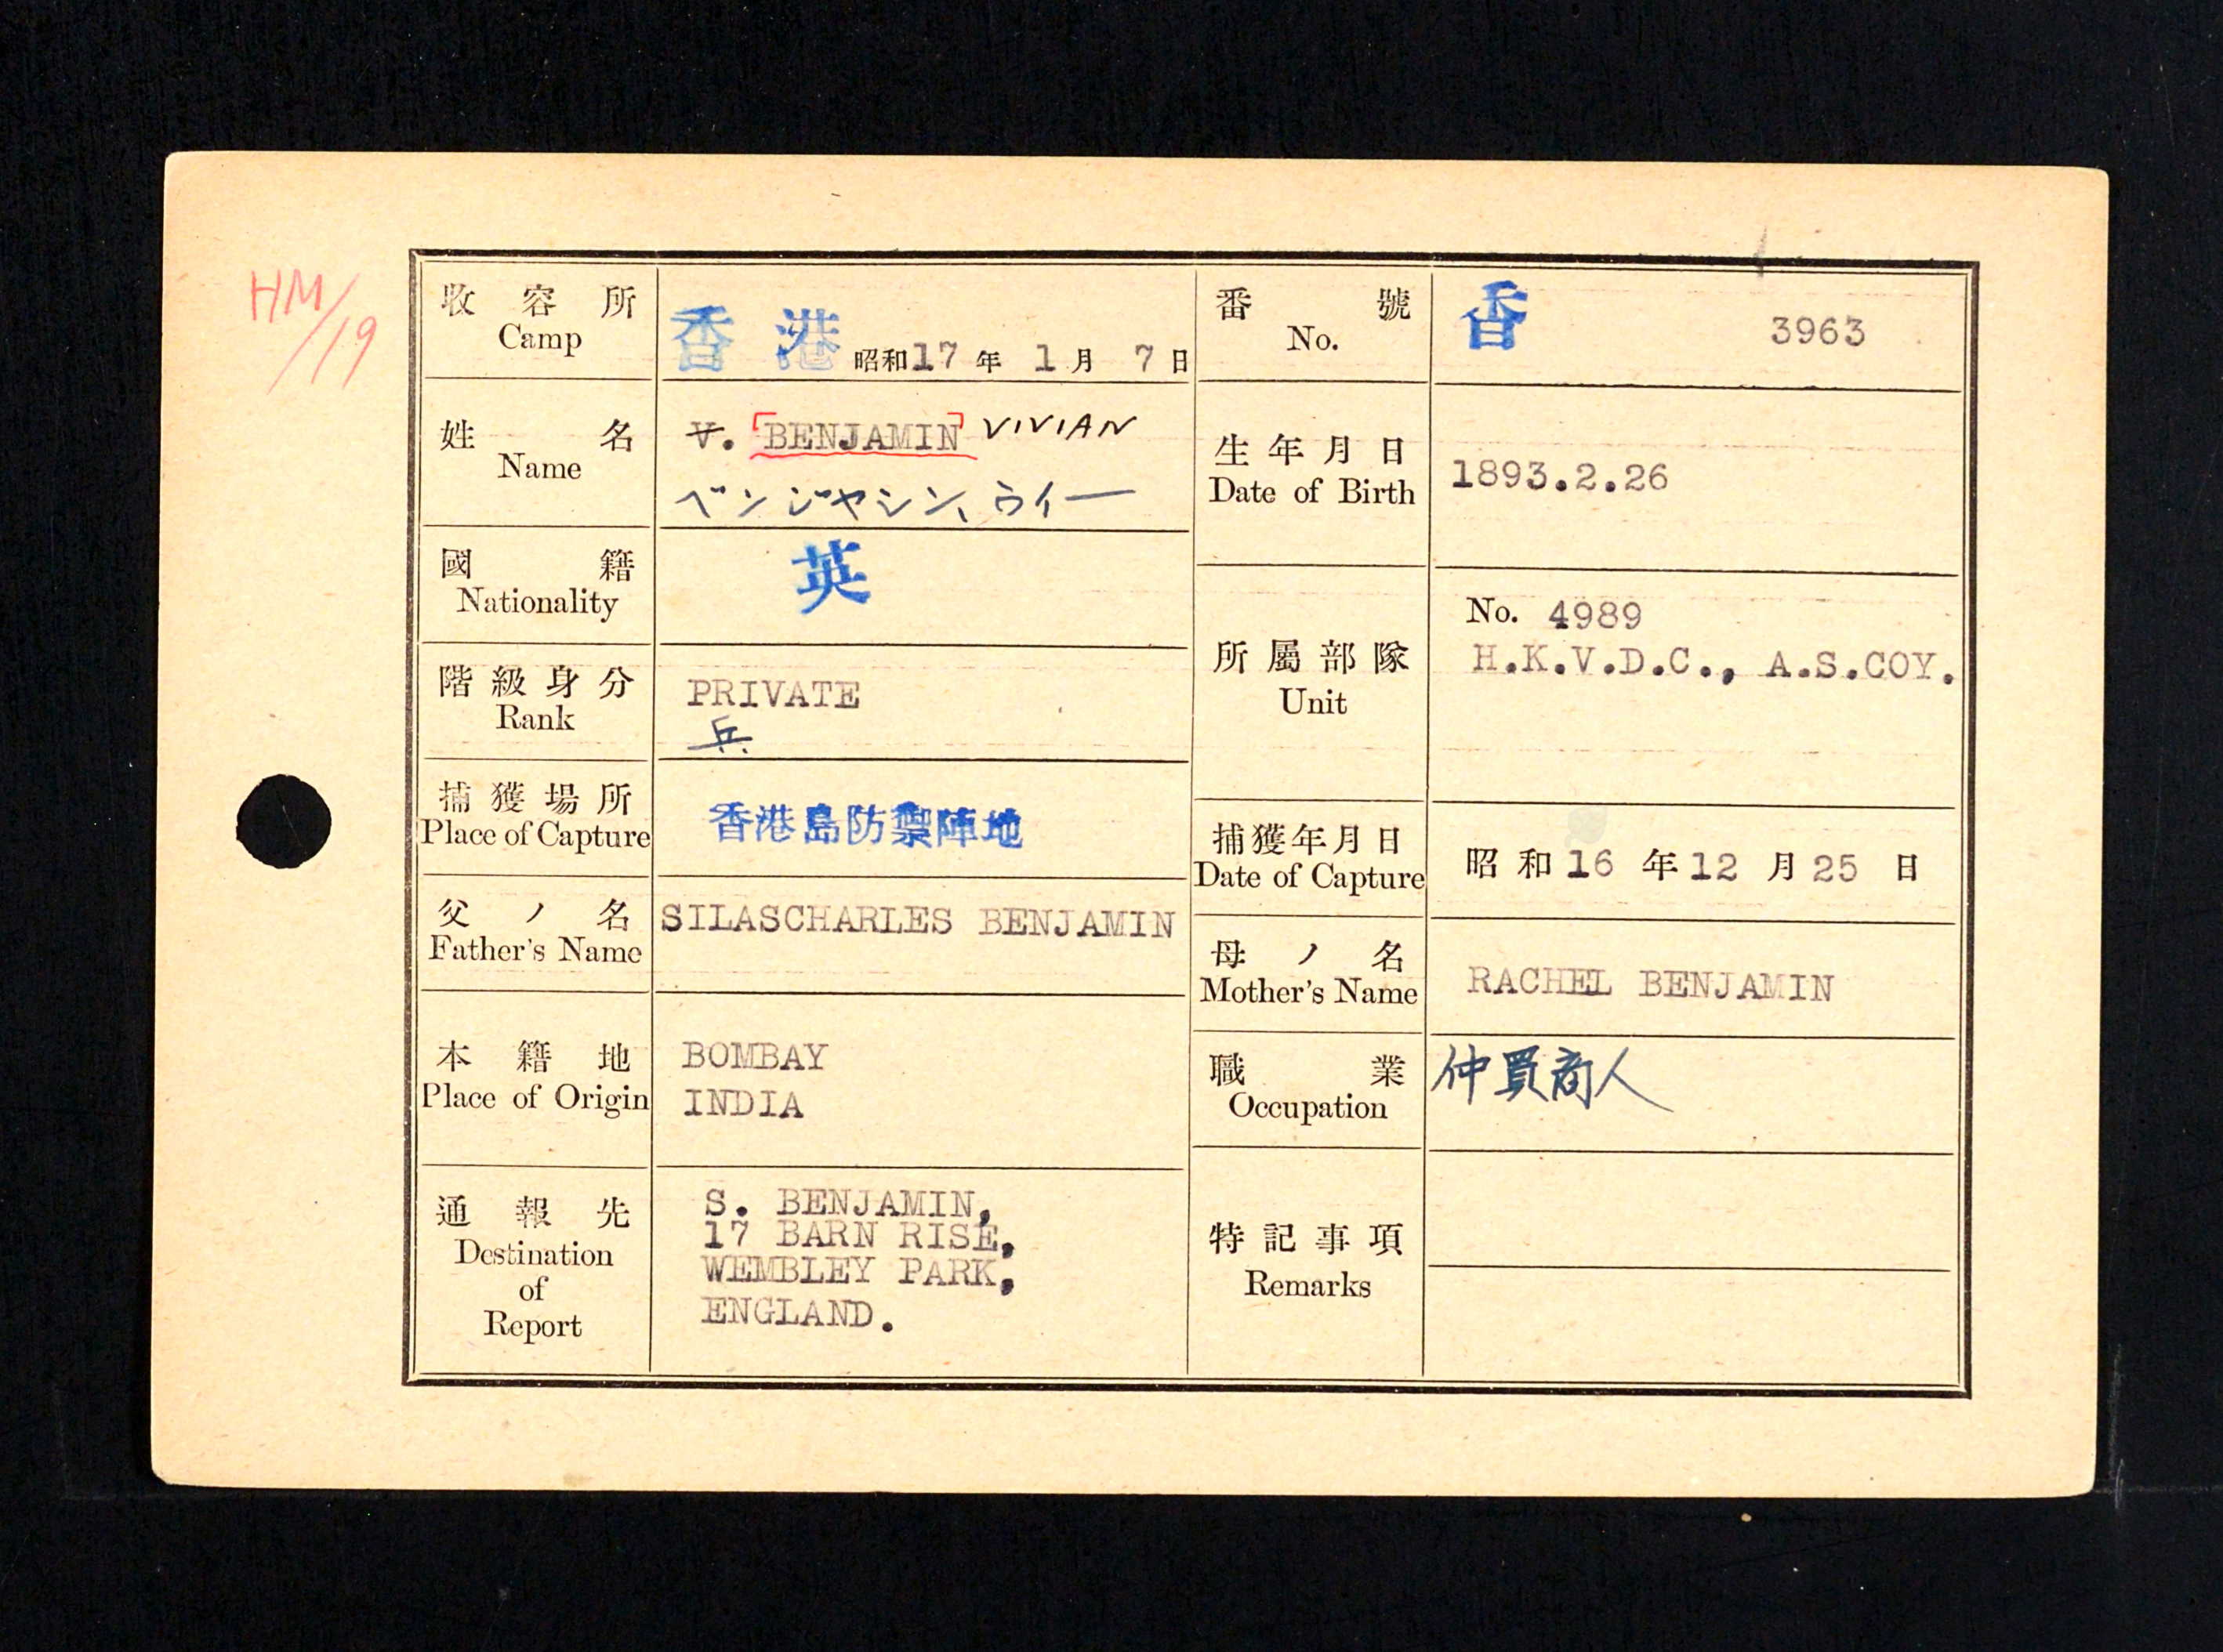 HM/19
收容所
Camp
香港 昭和17年 1月 7日
番號
No.
香 3963
姓名
Name
V. BENJAMIN VIVIAN
ベンジヤシン、ウイー
生年月日
Date of Birth
1893.2.26
國籍
Nationality
英
階級身分
Rank
PRIVATE
兵
所屬部隊
Unit
No. 4989
H.K.V.D.C., A.S.COY.
捕獲場所
Place of Capture
香港島防禦陣地
捕獲年月日
Date of Capture
昭和16年12月25日
父ノ名
Father's Name
SILASCHARLES BENJAMIN
母ノ名
Mother's Name
RACHEL BENJAMIN
本籍地
Place of Origin
BOMBAY
INDIA
職業
Occupation
仲買商人
通報先
Destination
of
Report
S. BENJAMIN,
17 BARN RISE,
WEMBLEY PARK,
ENGLAND.
特記事項
Remarks